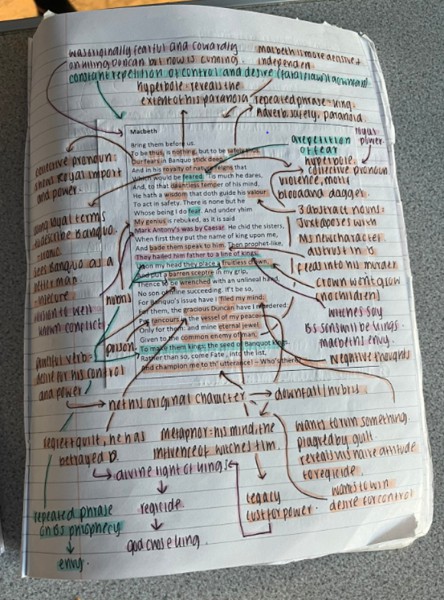 was originally fearful and cowardly
on killing Duncan but now is cunning.
Macbeth is more decisive +
independent.
constant repetition of control and desire (fatal flaw)
hyperbole - reveals the
extent of his paranoia
repeated phrase - king.
Adverb, safely, paranoid.
royal
power.
a repetition
of fear
hyperbole.
collective pronoun
violence, motif
blood and dagger.
3 abstract nouns.
Juxtaposes with
MS new character
distrust in B
crown wont grow
(no children)
witches say
B's sons will be kings -
macbeths envy.
Negative thoughts
collective pronoun
shows royal import
and power.
using royal terms
to describe Banquo.
ironic
sees Banquo as a
better man
insecure
conflict
hubris
poison
verb
desire for his control
and power
Macbeth
Bring them before us.
To be thus is nothing, but to be safely thus.
Our fears in Banquo stick deep,
And in his royalty of nature reigns that
Which would be feared. 'Tis much he dares,
And, to that dauntless temper of his mind,
He hath a wisdom that doth guide his valour
To act in safety. There is none but he
Whose being I do fear. And under him
My genius is rebuked, as it is said
Mark Antony's was by Caesar. He chid the sisters,
When first they put the name of king upon me,
And bade them speak to him. Then prophet-like,
They hailed him father to a line of kings.
Upon my head they placed a fruitless crown,
And put a barren sceptre in my grip,
Thence to be wrenched with an unlineal hand,
No son of mine succeeding. If't be so,
For Banquo's issue have I filed my mind;
For them, the gracious Duncan have I murdered;
Put rancours in the vessel of my peace
Only for them; and mine eternal jewel
Given to the common enemy of man,
To make them kings, the seed of Banquo kings.
Rather than so, come Fate, into the list,
And champion me to th' utterance! – Who's there?
not his original character
downfall/hubris
regret + guilt, he has
betrayed D.
metaphor - his mind, the
influence of witches
divine right of kings
regicide
god chose king.
legacy
lust for power.
wants to win something.
plagued by guilt
reveals his naive attitude
to regicide.
wants to win
desire for control
repeated phrase
on Bs prophecy
envy.